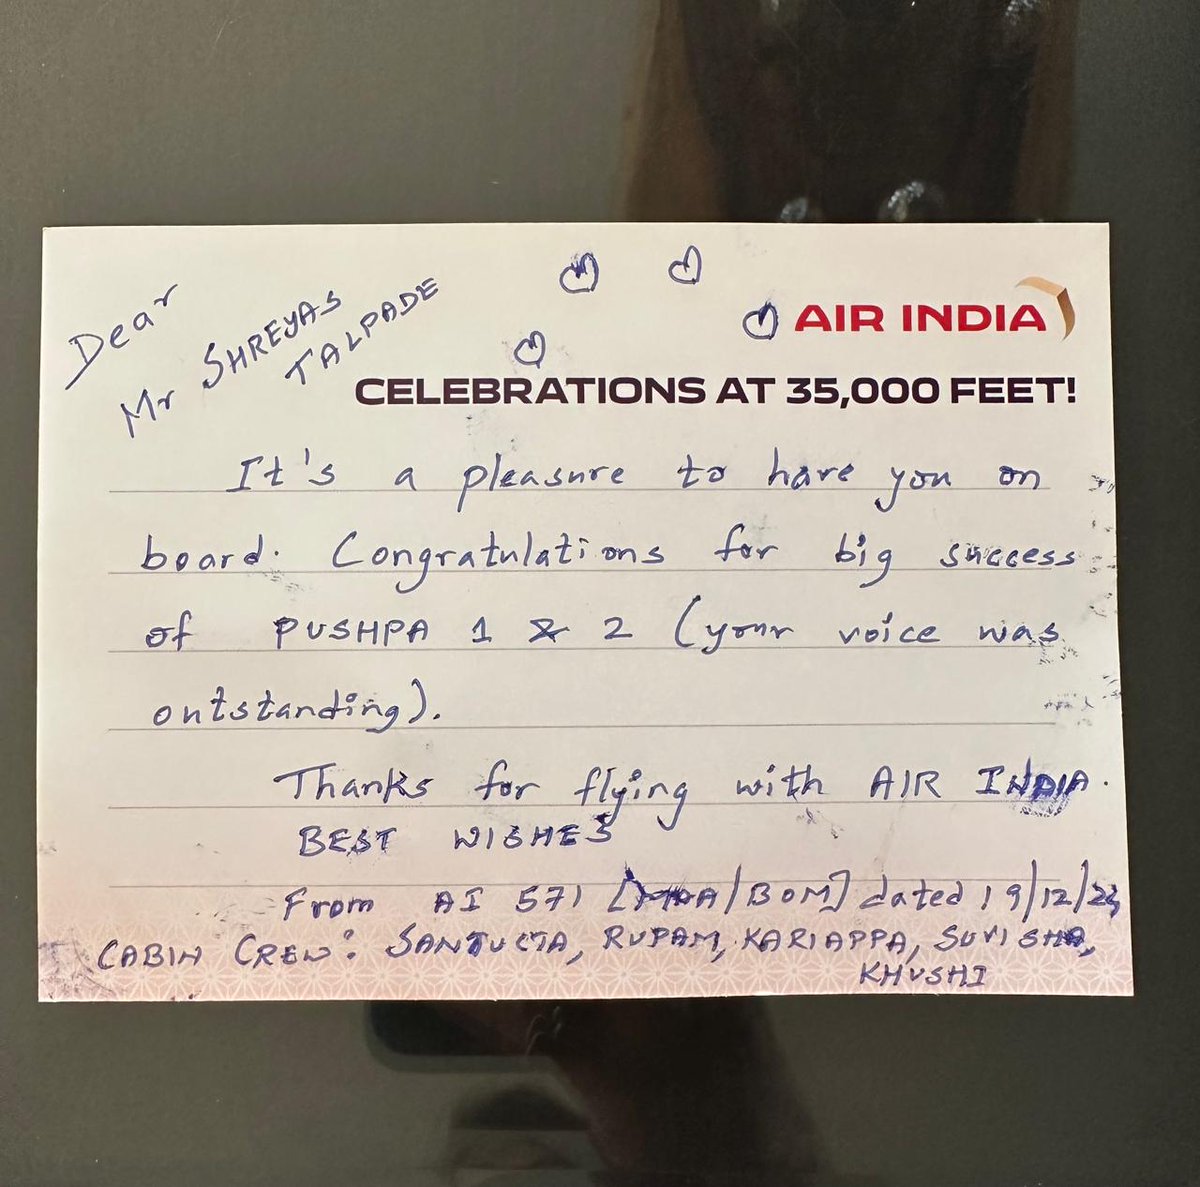 Dear
Mr SHREYAS
TALPADE
AIR INDIA
CELEBRATIONS AT 35,000 FEET!
It's a pleasure to have you on
board. Congratulations for big success
of PUSHPA 1 & 2 (your voice was
outstanding).
Thanks for flying with AIR INDIA.
BEST WISHES
From AI 571 [/BOM] dated 19/12/
CABIN CREW: RUPAM, KARIAPPA,
KHUSHI